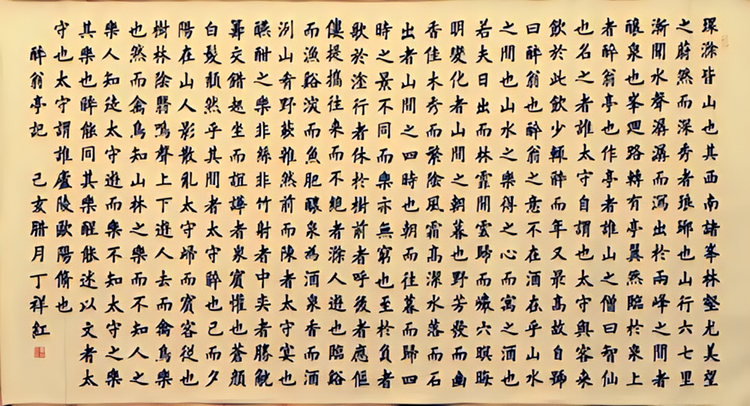 環滁皆山也其西南諸峯林壑尤美望
之蔚然而深秀者瑯琊也山行六七里
漸聞水聲潺潺而瀉出於兩峰之間者
釀泉也峯迴路轉有亭翼然臨於泉上
者醉翁亭也作亭者誰山之僧曰智仙
也名之者誰太守自謂也太守與客來
飲於此飲少輒醉而年又最高故自號
曰醉翁也醉翁之意不在酒在乎山水
之間也山水之樂得之心而寓之酒也
若夫日出而林霏開雲歸而巖穴暝晦
明變化者山間之朝暮也野芳發而幽
香佳木秀而繁陰風霜高潔水落而石
出者山間之四時也朝而往暮而歸四
時之景不同而樂亦無窮也至於負者
歌於塗行者休於樹前者呼後者應傴
僂提攜往來而不絕者滁人遊也臨谿
而漁谿深而魚肥釀泉為酒泉香而酒
洌山肴野蔌雜然前而陳者太守宴也
醼酣之樂非絲非竹射者中奕者勝觥
籌交錯起坐而諠譁者衆賓懽也蒼顏
白髮頹然乎其間者太守醉也已而夕
陽在山人影散亂太守歸而賓客從也
樹林陰翳鳴聲上下遊人去而禽鳥樂
也然而禽鳥知山林之樂而不知人之
樂人知從太守遊而樂不知太守之樂
其樂也醉能同其樂醒能述以文者太
守也太守謂誰廬陵歐陽脩也
醉翁亭記 己亥腊月丁祥紅